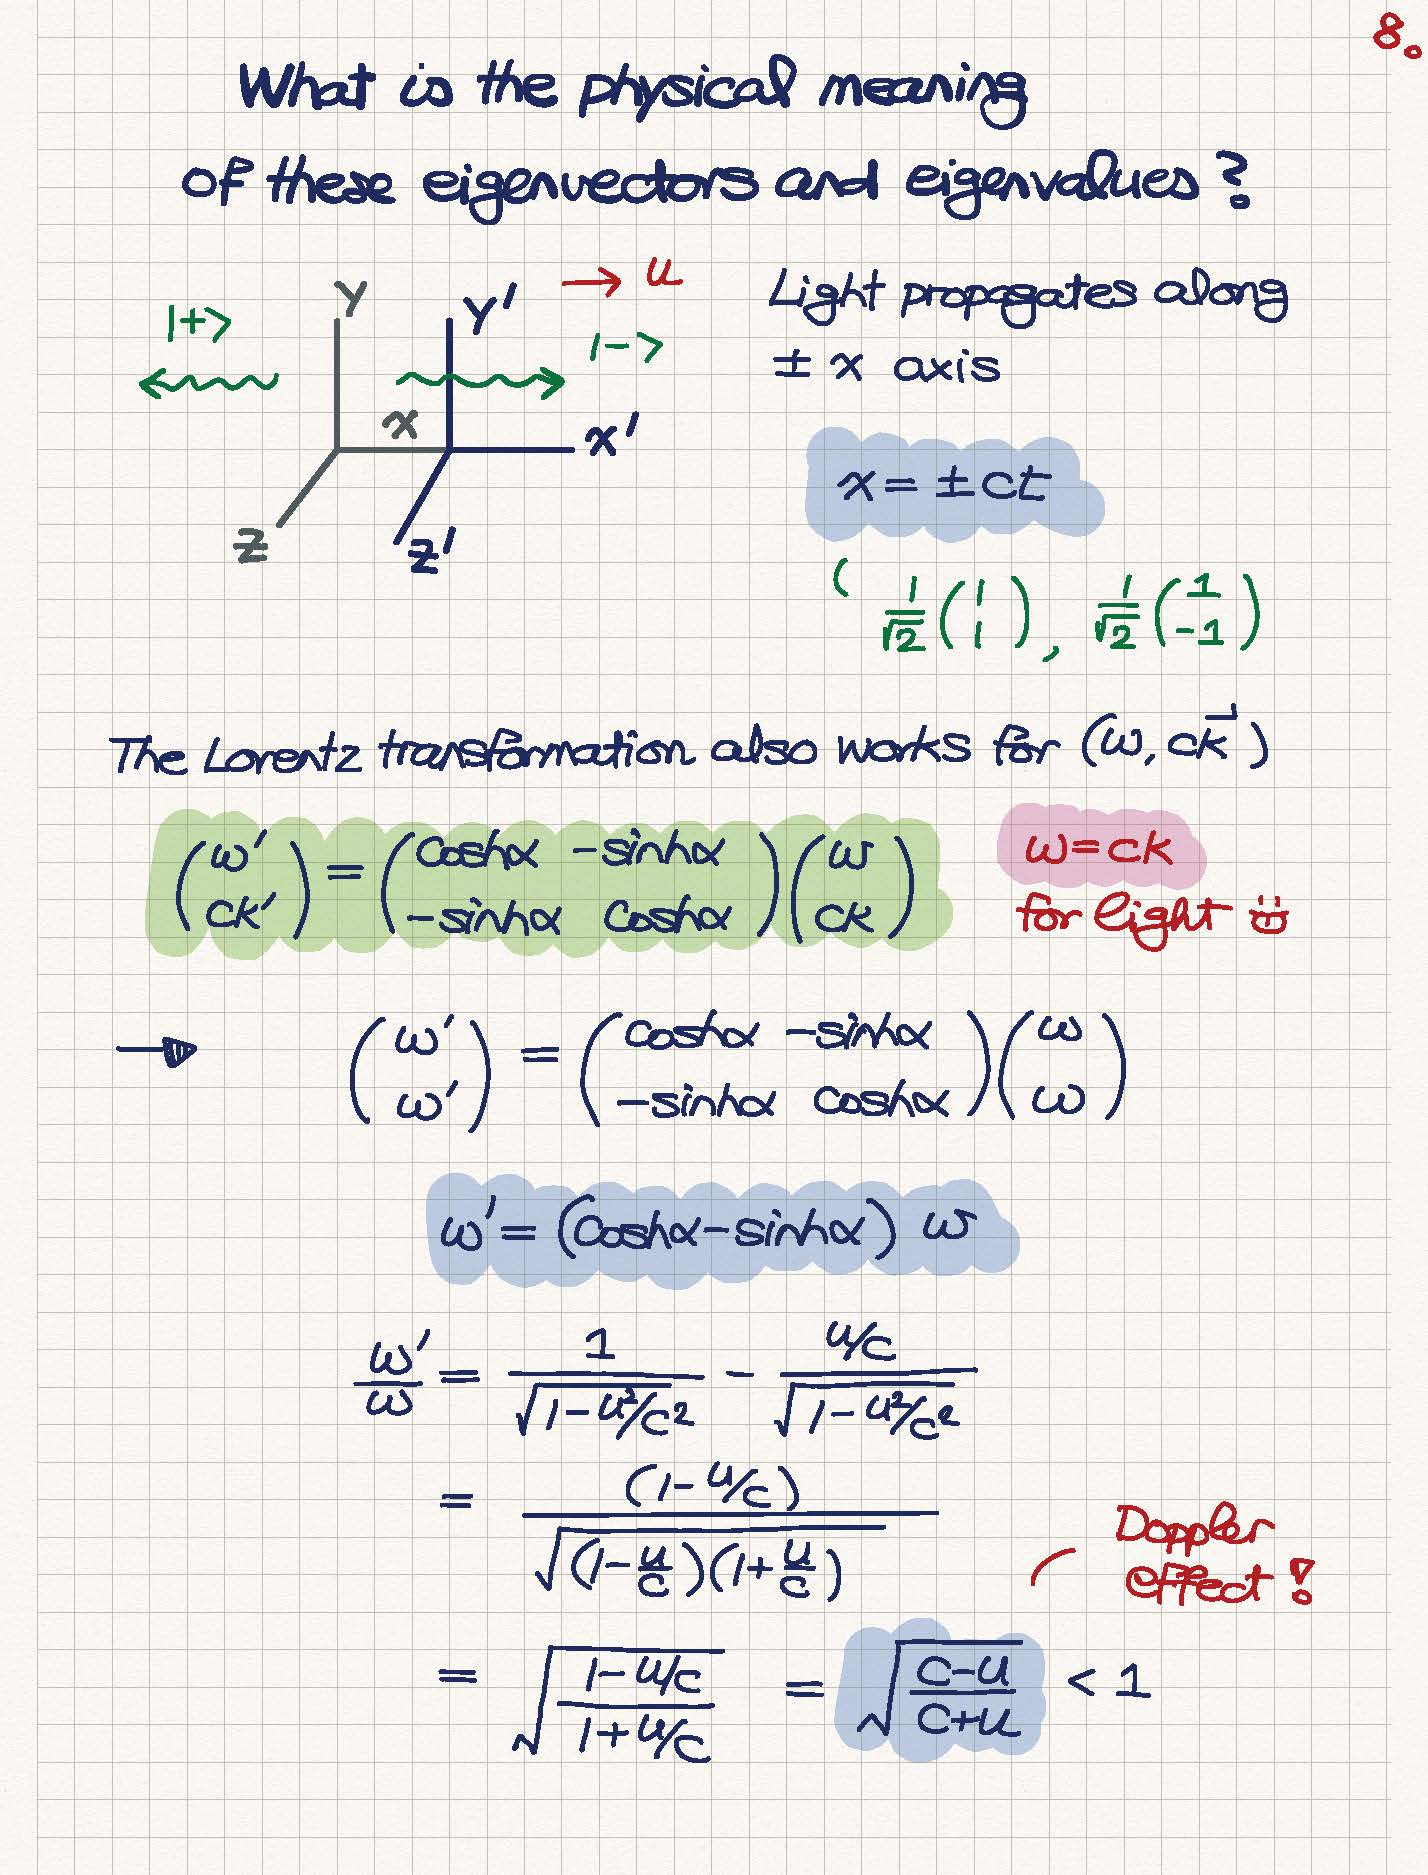 8.
What is the physical meaning
of these eigenvectors and eigenvalues?
|+>
Y
Y'
→ u
|->
x
x'
Z
Z'
Light propagates along
± x axis
x = ± ct
( 1/√2 (1 1), 1/√2 (1 -1)
The Lorentz transformation also works for (ω, ck⃗)
(ω' ck') = (coshα -sinhα -sinhα coshα)(ω ck)
ω = ck
for light
→ (ω' ω') = (coshα -sinhα -sinhα coshα)(ω ω)
ω' = (coshα - sinhα) ω
ω'/ω = 1/√(1-u²/c²) - (u/c)/√(1-u²/c²)
= (1-u/c)/√((1-u/c)(1+u/c))
Doppler
effect!
= √((1-u/c)/(1+u/c)) = √((c-u)/(c+u)) < 1